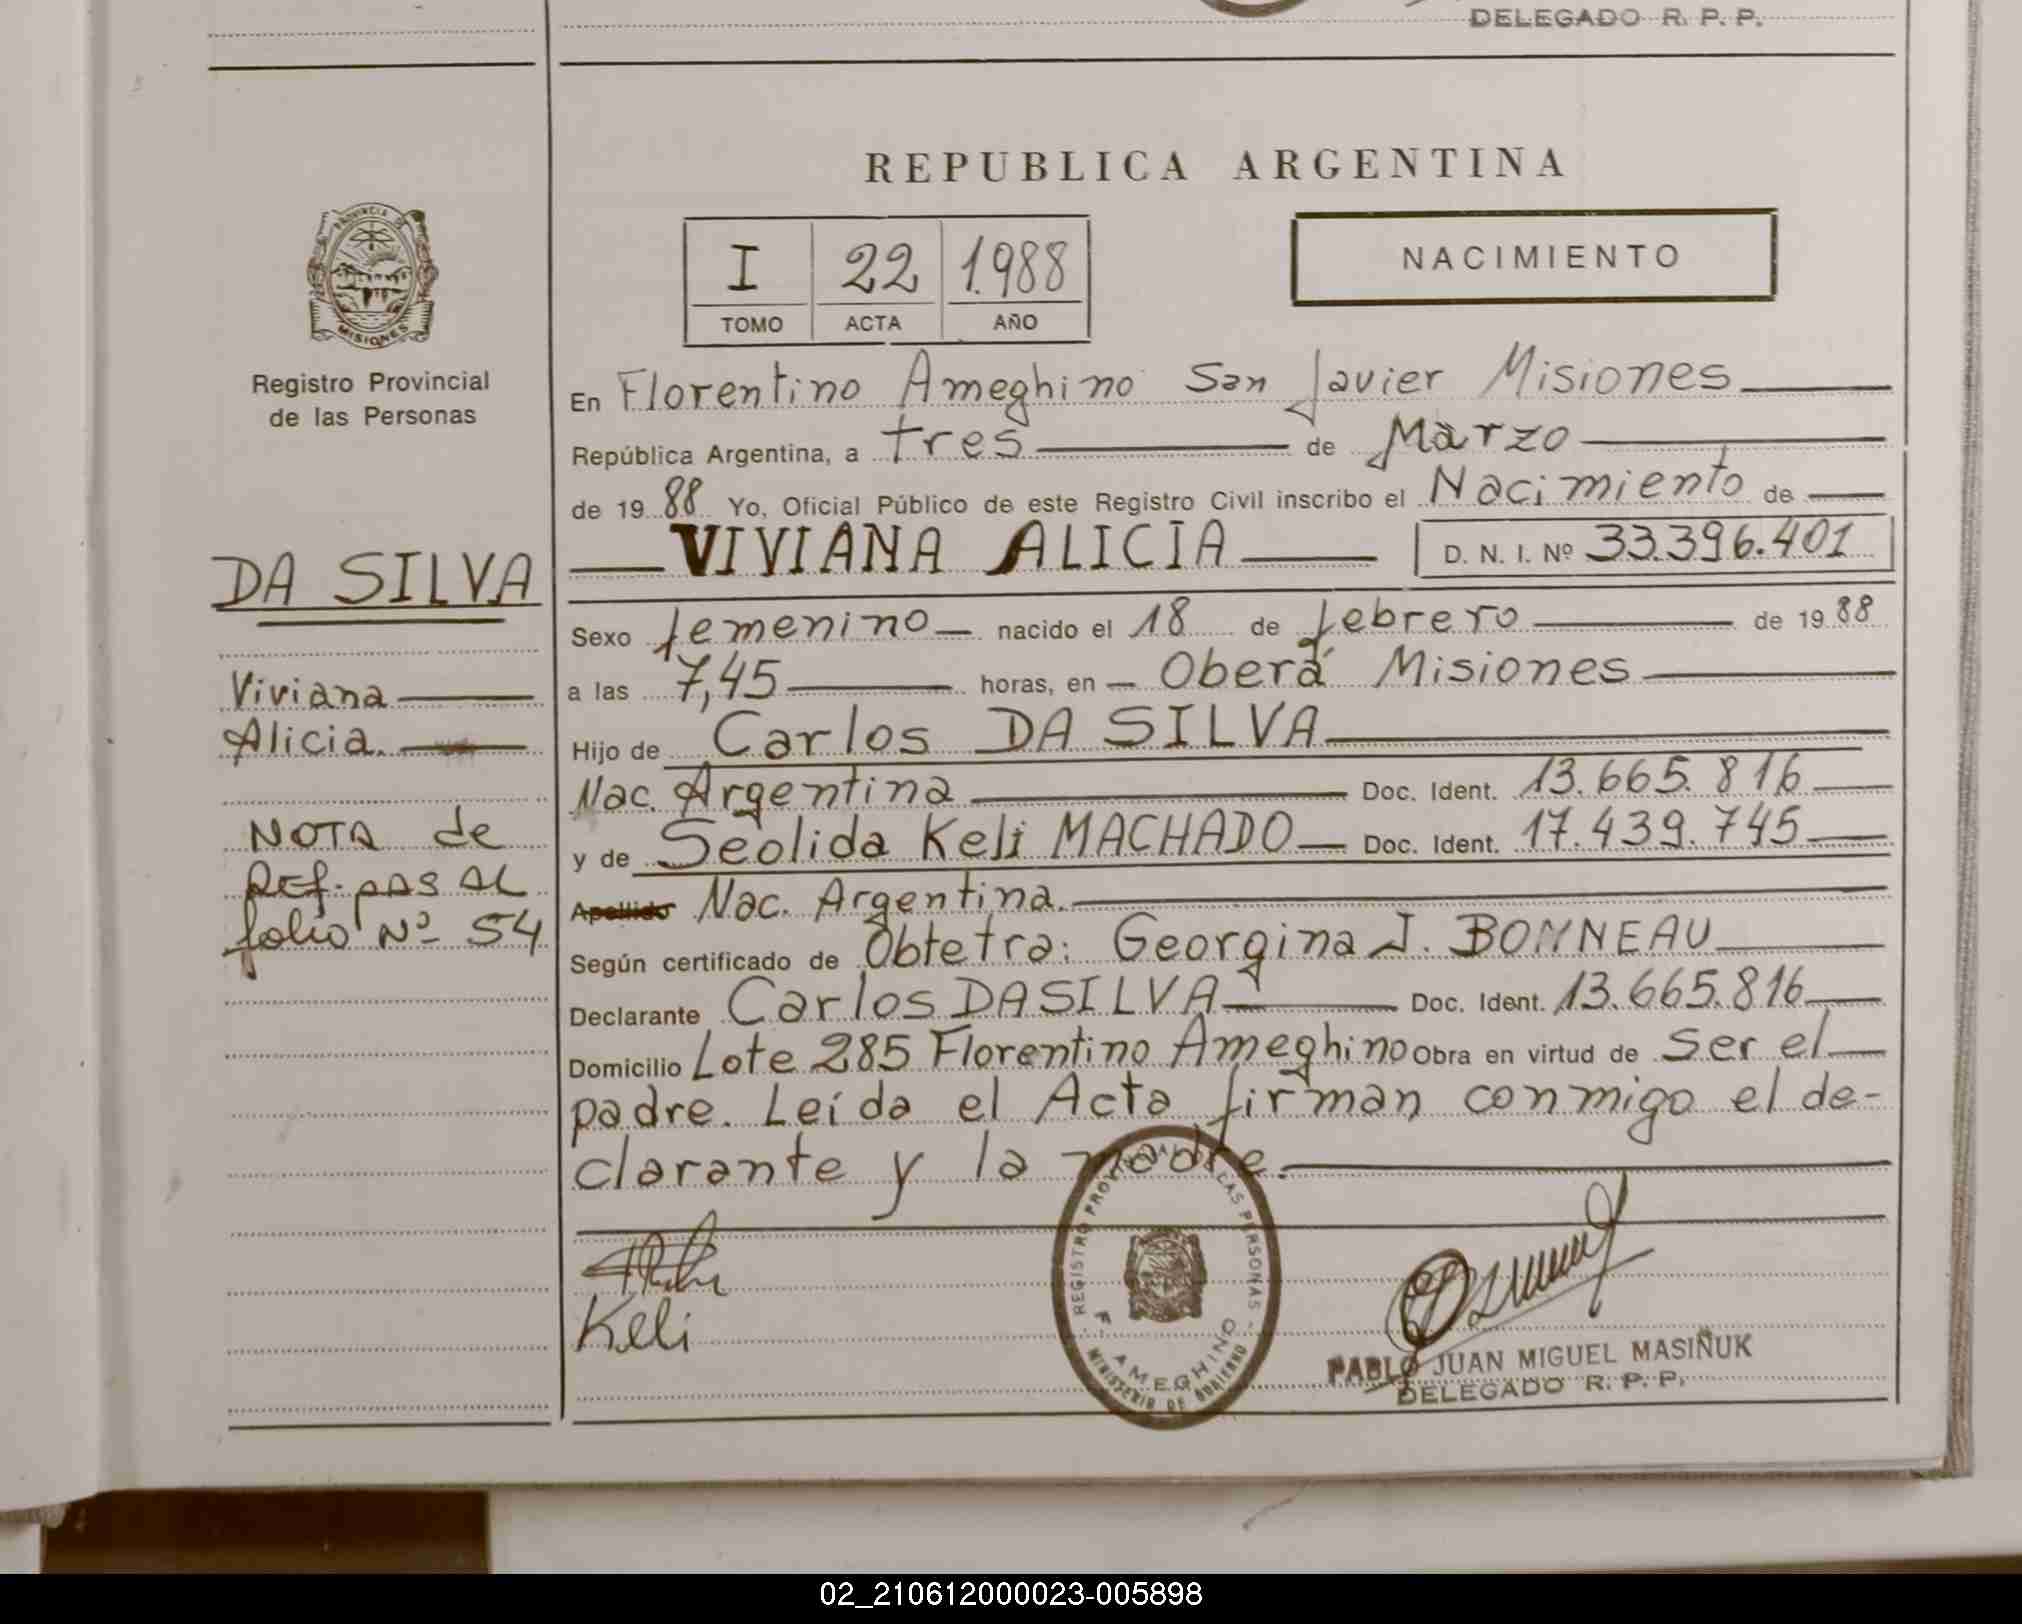 DELEGADO R. P. P.
REPUBLICA ARGENTINA
I 22 1.988
TOMO ACTA AÑO
NACIMIENTO
PROVINCIA DE MISIONES
Registro Provincial
de las Personas
DA SILVA
Viviana
Alicia.
NOTA de
REf. pas AL
folio Nº 54
En Florentino Ameghino San Javier Misiones
República Argentina, a tres de Marzo
de 19 88 Yo, Oficial Público de este Registro Civil inscribo el Nacimiento de
VIVIANA ALICIA D. N. I. Nº 33.396.401
Sexo femenino nacido el 18 de febrero de 19 88
a las 7,45 horas, en Oberá Misiones
Hijo de Carlos DA SILVA
Nac. Argentina Doc. Ident. 13.665.816
y de Seolida Keli MACHADO Doc. Ident. 17.439.745
Apellido Nac. Argentina.
Según certificado de Obtetra: Georgina J. BONNEAU
Declarante Carlos DA SILVA Doc. Ident. 13.665.816
Domicilio Lote 285 Florentino Ameghino Obra en virtud de ser el
padre. Leída el Acta firman conmigo el de-
clarante y la madre.
Keli
REGISTRO PROVINCIAL DE LAS PERSONAS
F. AMEGHINO
MINISTERIO DE GOBIERNO
PABLO JUAN MIGUEL MASIÑUK
DELEGADO R. P. P.
02_210612000023-005898